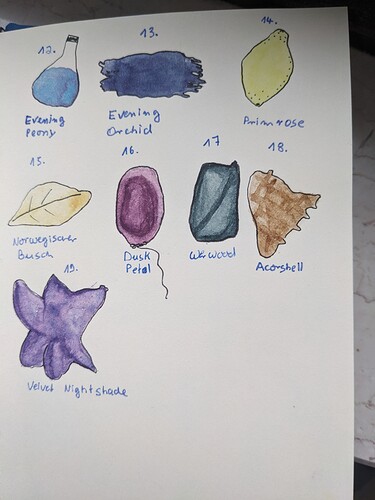 12.
Evening
Peony
13.
Evening
Orchid
14.
Primrose
15.
Norwegischer
Busch
16.
Dusk
Petal
17
Werwood
18.
Acorshell
19.
Velvet Nightshade